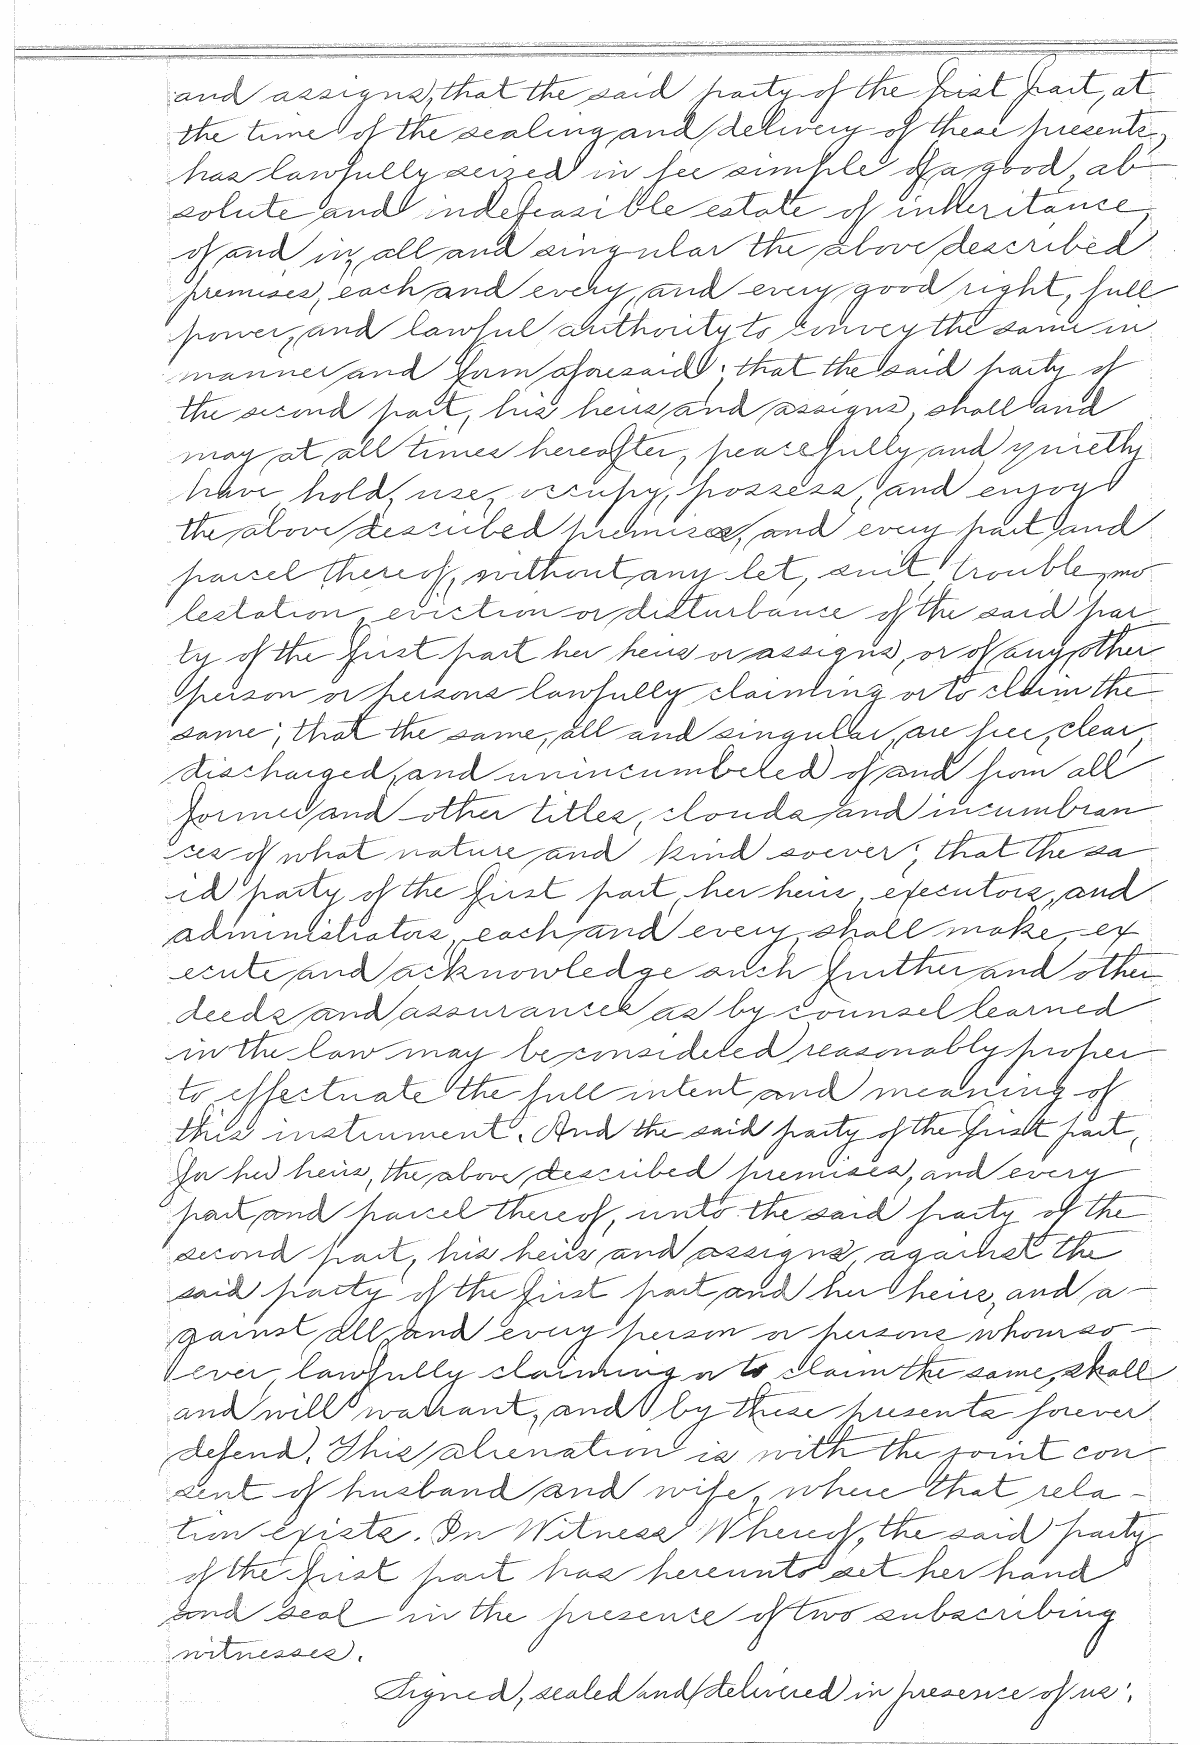 and assigns, that the said party of the first part, at
the time of the sealing and delivery of these presents,
has lawfully seized in fee simple of a good, ab-
solute and indefeasible estate of inheritance,
of and in, all and singular the above described
premises, each and every, and every good right, full
power, and lawful authority to convey the same in
manner and form aforesaid; that the said party of
the second part, his heirs and assigns, shall and
may at all times hereafter, peacefully and quietly
have, hold, use, occupy, possess, and enjoy
the above described premises, and every part and
parcel thereof, without any let, suit, trouble, mo
lestation, eviction or disturbance of the said par
ty of the first part her heirs or assigns, or of any other
person or persons lawfully claiming or to claim the
same; that the same, all and singular, are free, clear,
discharged, and unincumbered of and from all
former and other titles, clouds and incumbran
ces of what nature and kind soever; that the sa
id party of the first part, her heirs, executors, and
administrators, each and every, shall make, ex
ecute and acknowledge such further and other
deeds and assurances as by counsel learned
in the law may be considered reasonably proper
to effectuate the full intent and meaning of
this instrument. And the said party of the first part,
for her heirs, the above described premises, and every
part and parcel thereof, unto the said party of the
second part, his heirs and assigns, against the
said party of the first part and her heirs, and a-
gainst all and every person or persons whomso-
ever, lawfully claiming or to claim the same, shall
and will warrant, and by these presents forever
defend. This alienation is with the joint con
sent of husband and wife, where that rela-
tion exists. In Witness Whereof, the said party
of the first part has hereunto set her hand
and seal in the presence of two subscribing
witnesses.
Signed, sealed and delivered in presence of us: